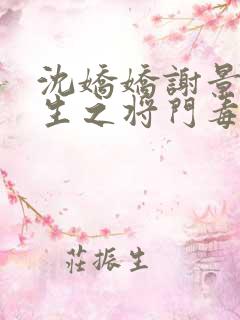 沈嬌嬌謝景
生之將門毒
莊振生